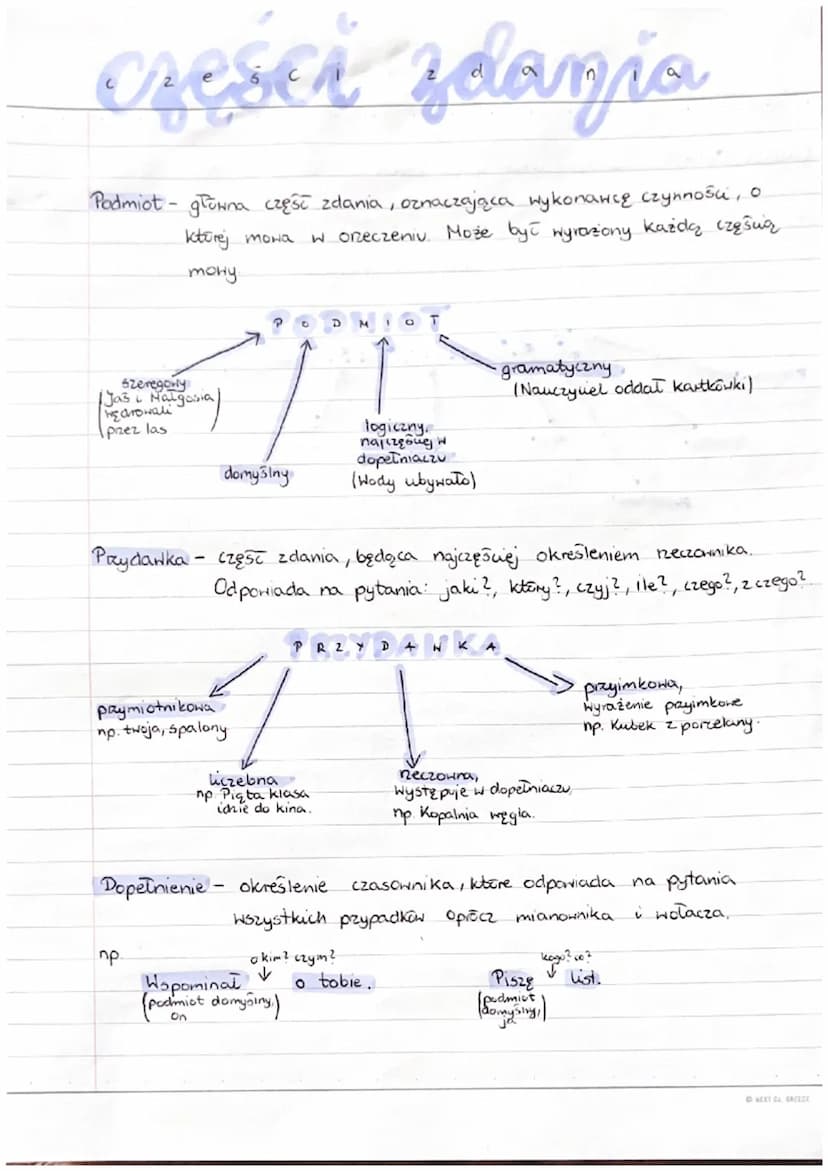 części zdania
Podmiot - główna część zdania, oznaczająca wykonawcę czynności, o
której mowa w orzeczeniu. Może być wyrażony każdą częścią
mowy.
PODMIOT
szeregowy
(Jaś i Małgosia
wędrowali
przez las)
domyślny
logiczny,
najczęściej w
dopełniaczu
(Wody ubywało)
gramatyczny
(Nauczyciel oddał kartkówki)
Przydawka - część zdania, będąca najczęściej określeniem rzeczownika.
Odpowiada na pytania: jaki?, który?, czyj?, ile?, czego?, z czego?
PRZYDAWKA
przymiotnikowa
np. twoja, spalony
liczebna
np. Piąta klasa
idzie do kina.
rzeczowna,
występuje w dopełniaczu,
np. Kopalnia węgla.
przyimkowa,
wyrażenie przyimkowe
np. Kubek z porcelany.
Dopełnienie - określenie czasownika, które odpowiada na pytania
wszystkich przypadków oprócz mianownika i wołacza.
np. o kim? czym? kogo? co?
Wspominał o tobie. Piszę list.
(podmiot domyślny,
on)
(podmiot
domyślny,
ja)